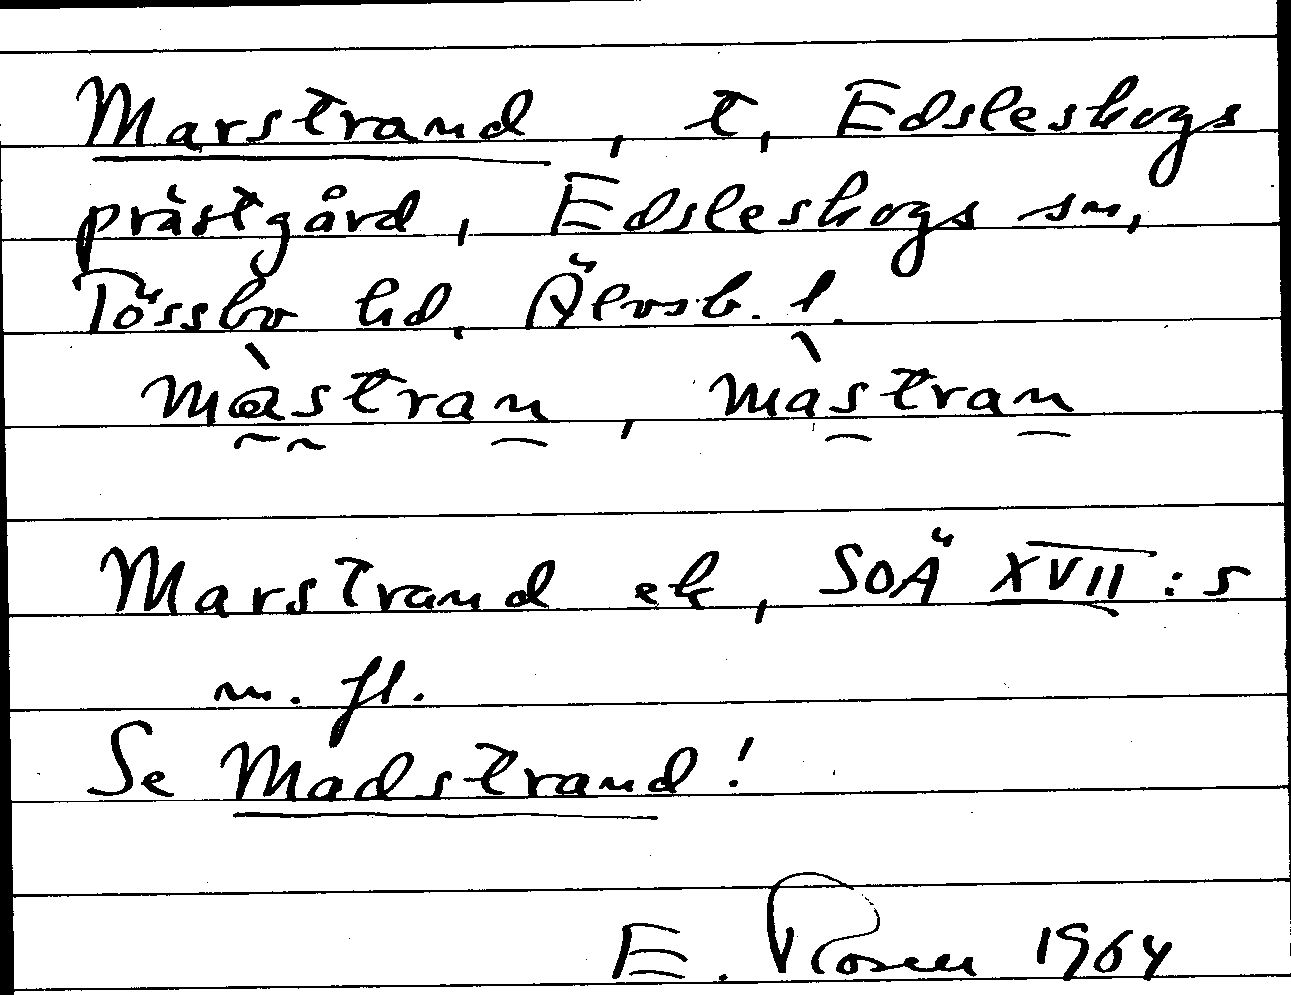 Marstrand, t, Edsleskogs
prästgård, Edsleskogs sn,
Tössbo hd. Älvsb. l.
màstran, màstran
Marstrand ek, SOÄ XVII:5
m. fl.
Se Madstrand!
E. Rosell 1964